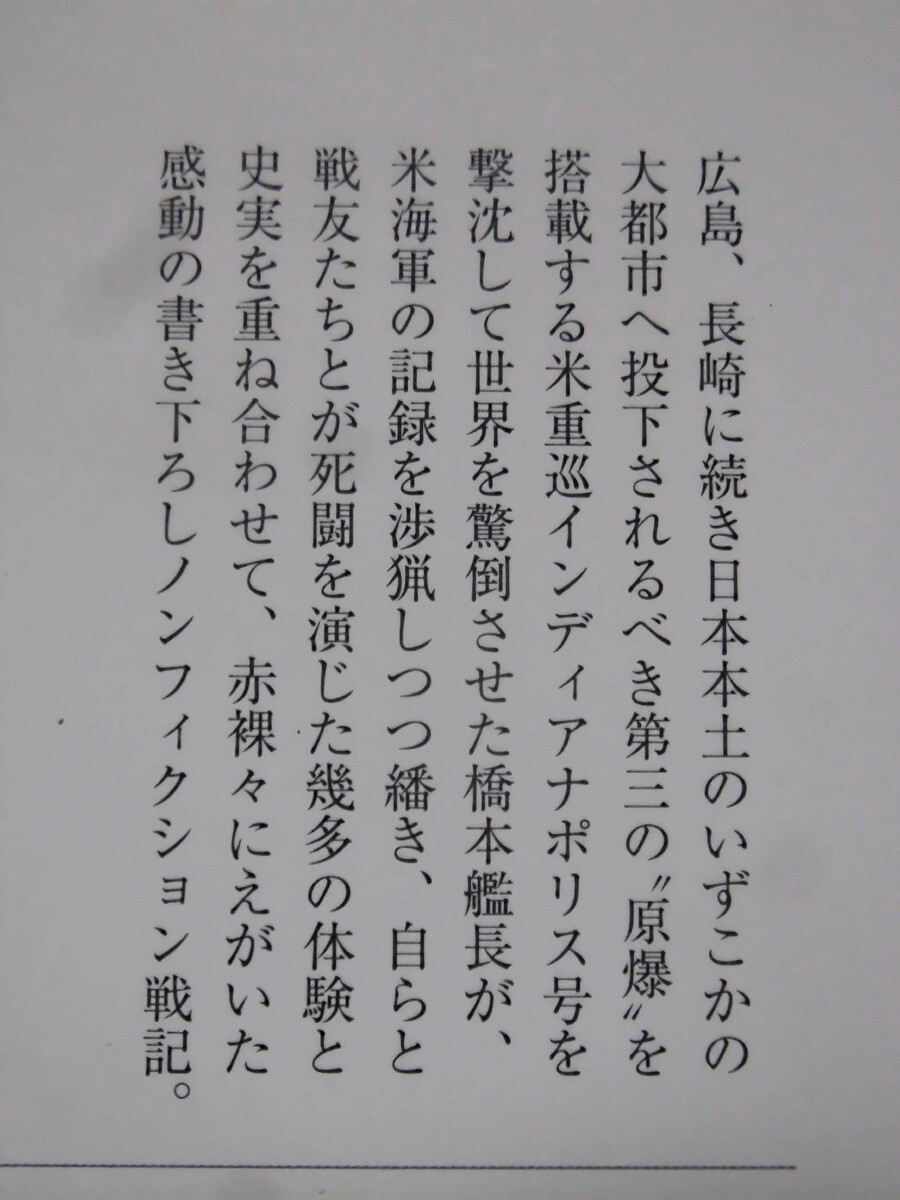 広島、長崎に続き日本本土のいずこかの
大都市へ投下されるべき第三の〝原爆〟を
搭載する米重巡インディアナポリス号を
撃沈して世界を驚倒させた橋本艦長が、
米海軍の記録を渉猟しつつ繙き、自らと
戦友たちとが死闘を演じた幾多の体験と
史実を重ね合わせて、赤裸々にえがいた
感動の書き下ろしノンフィクション戦記。